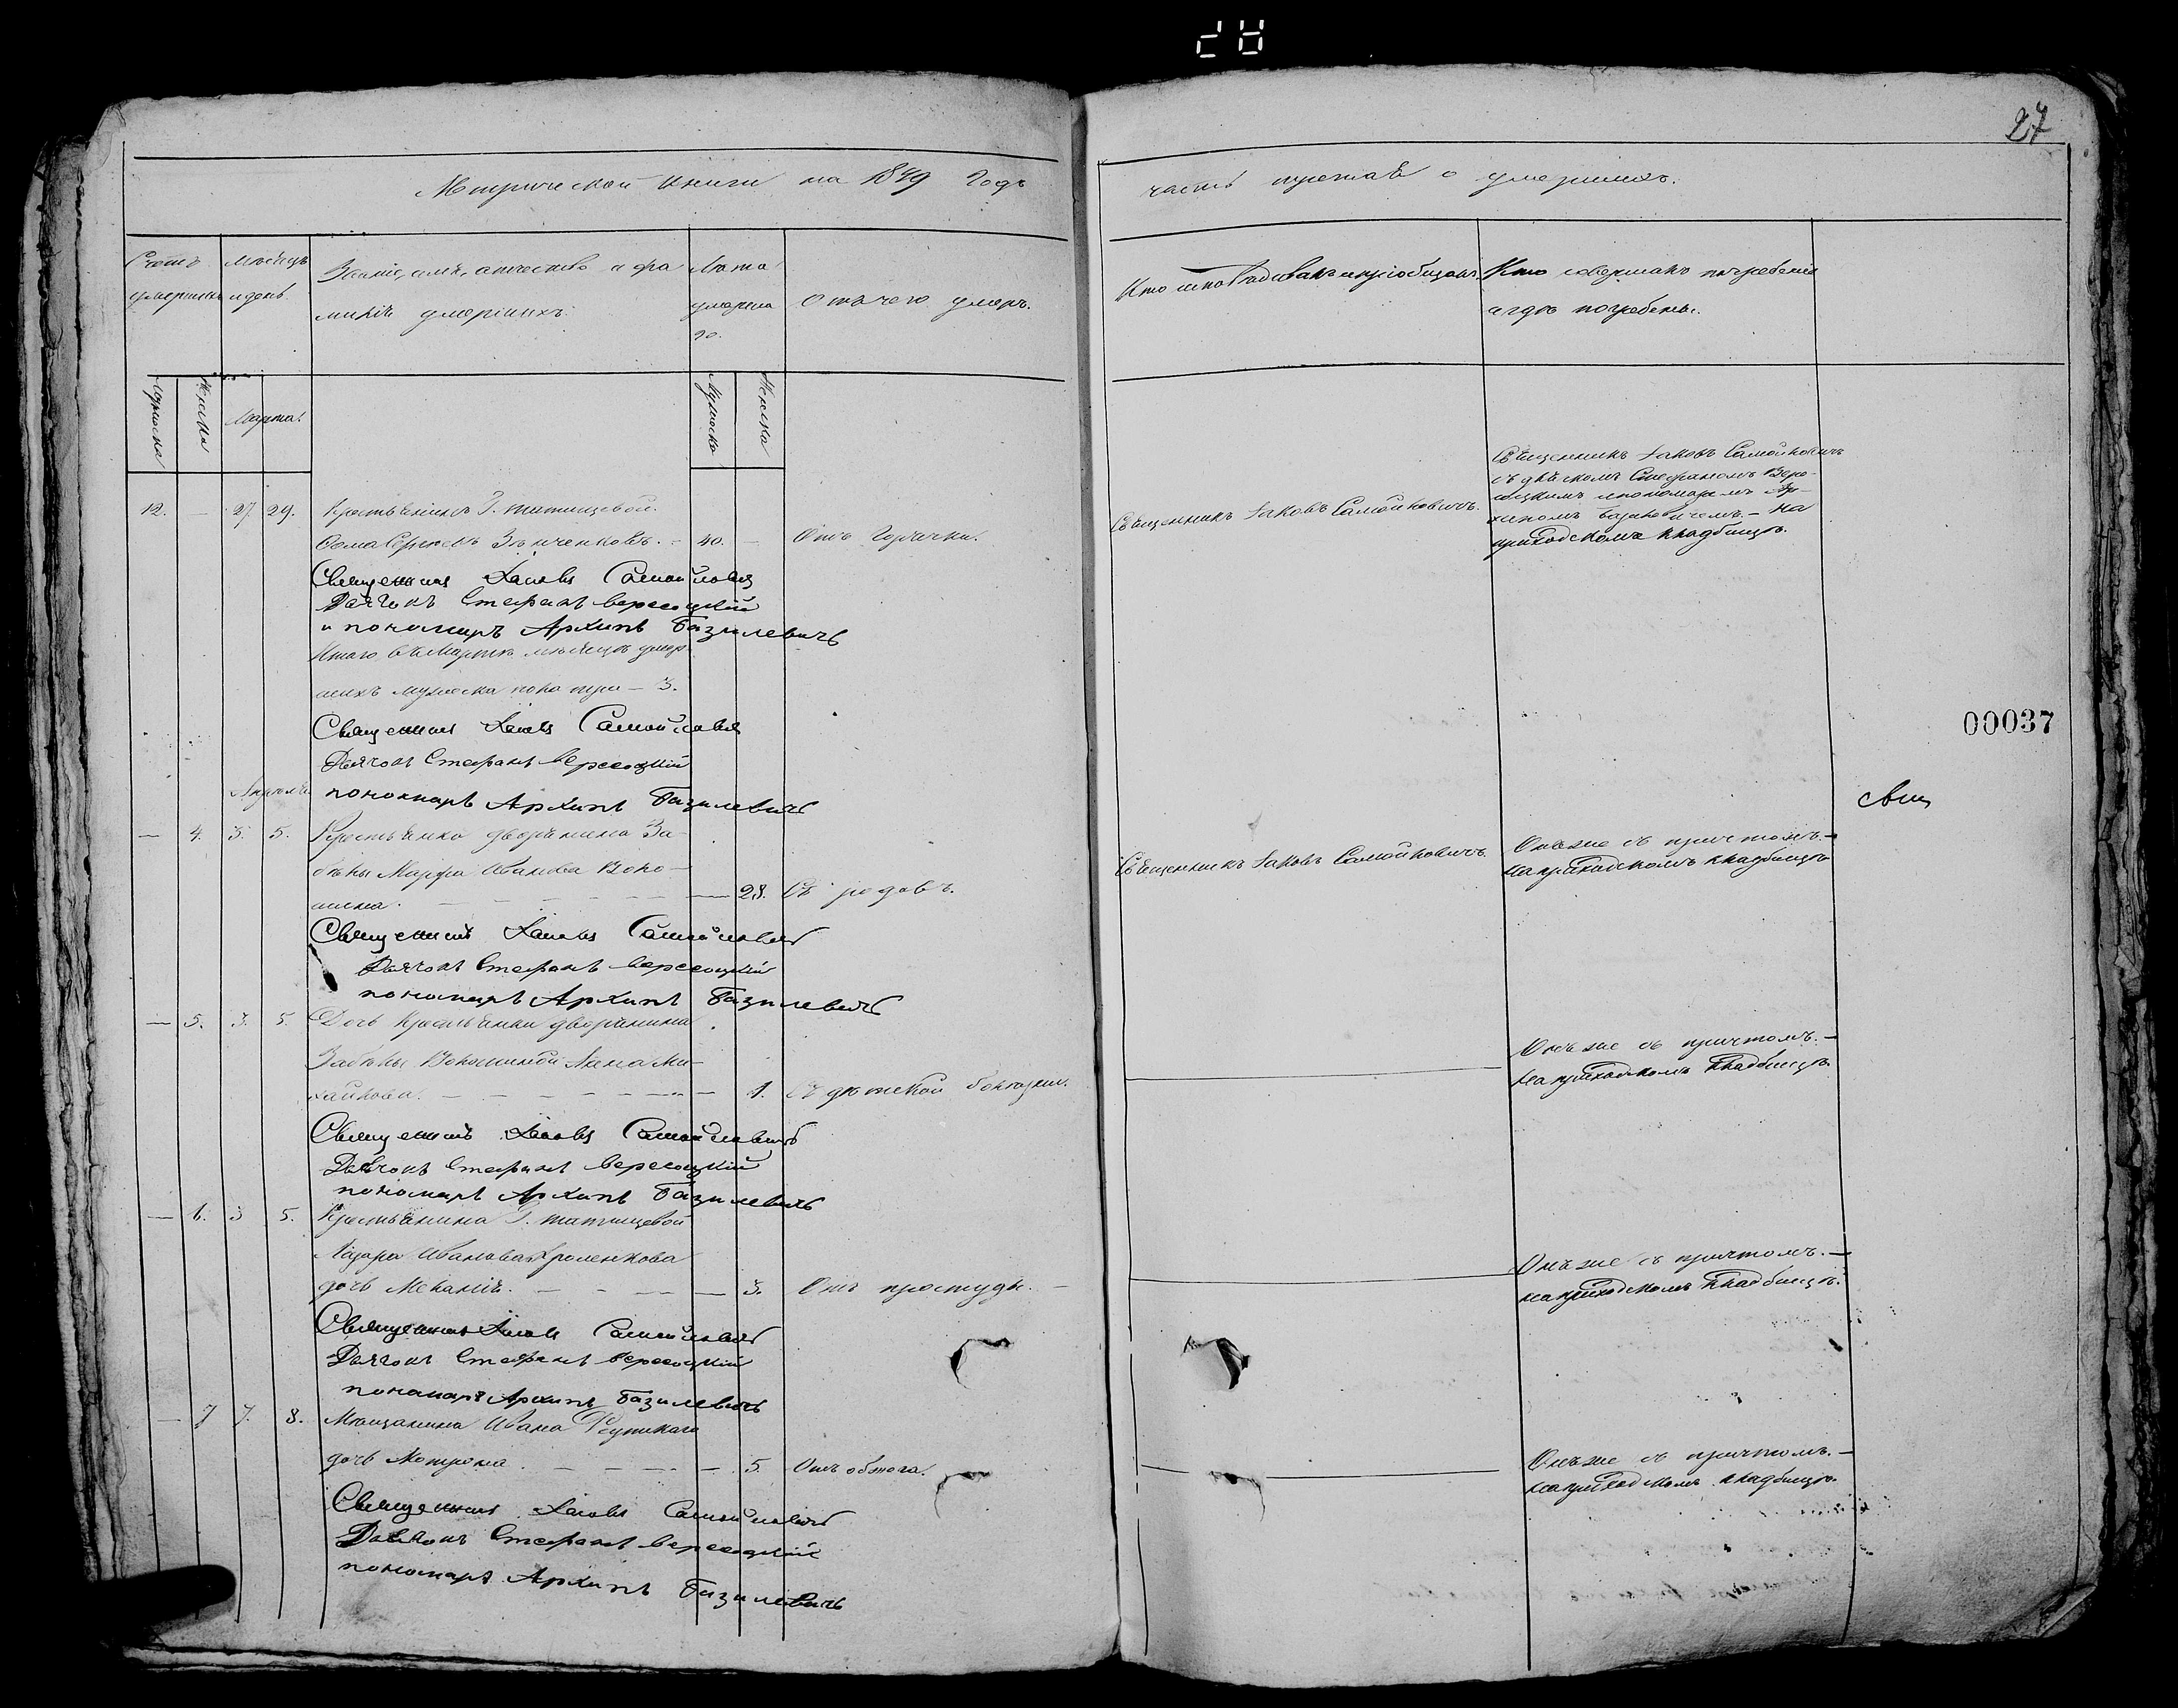 27
Метрической книги на 1849 годъ
часть третья о умершихъ.
Счетъ умершихъ
Мѣсяцъ и день
Званіе, имя, отчество и фамилія умершихъ.
Лѣта умершаго.
Отъ чего умеръ.
Кто исповѣдывалъ и пріобщалъ.
Кто совершалъ погребеніе
и гдѣ погребены.
мужска
женска
Марта.
Мужска
Женска
12. — 27. 29.
Крестьянинъ Г. Татищевой
Ѳома Сергѣевъ Зѣнченковъ. — 40. —
Отъ Горячки.
Священникъ Іаковъ Самойловичъ.
Священникъ Іаковъ Самойловичъ
съ дьячкомъ Стефаномъ Вере-
соцкимъ и пономаремъ Ар-
хипомъ Базилевичемъ. — На
приходскомъ кладбищѣ.
Священникъ Іаковъ Самойловичъ
Дьячокъ Стефанъ Вересоцкій
и пономарь Архипъ Базилевичъ
Итого въ Мартѣ мѣсяцѣ умер-
шихъ мужеска пола три — 3.
Священникъ Іаковъ Самойловичъ
Дьячокъ Стефанъ Вересоцкій
пономарь Архипъ Базилевичъ
Апрѣля
— 4. 3. 5.
Крестьянка дворянина За-
бѣлы Марфа Иванова Воло-
шина. — 28.
Съ родовъ.
Священникъ Іаковъ Самойловичъ.
Онъ же съ причтомъ. —
на приходскомъ кладбищѣ
Священникъ Іаковъ Самойловичъ
Дьячокъ Стефанъ Вересоцкій
пономарь Архипъ Базилевичъ
— 5. 3. 5.
Дочь крестьянки дворянина
Забѣлы Волошиной Анна Ми-
хайлова. — 1.
Съ дѣтской болѣзни.
Онъ же съ причтомъ. —
на приходскомъ кладбищѣ.
Священникъ Іаковъ Самойловичъ
Дьячокъ Стефанъ Вересоцкій
пономарь Архипъ Базилевичъ
— 6. 3 5.
Крестьянина Г. Татищевой
Лазаря Иванова
дочь Меланія. — 3.
Отъ простуды. —
Онъ же съ причтомъ. —
на приходскомъ кладбищѣ.
Священникъ Іаковъ Самойловичъ
Дьячокъ Стефанъ Вересоцкій
пономарь Архипъ Базилевичъ
— 7 7. 8.
Мѣщанина Ивана
дочь Матрона. — 5.
Отъ обжога.
Онъ же съ причтомъ. —
на приходскомъ кладбищѣ.
Священникъ Іаковъ Самойловичъ
Дьячокъ Стефанъ Вересоцкій
пономарь Архипъ Базилевичъ
00037